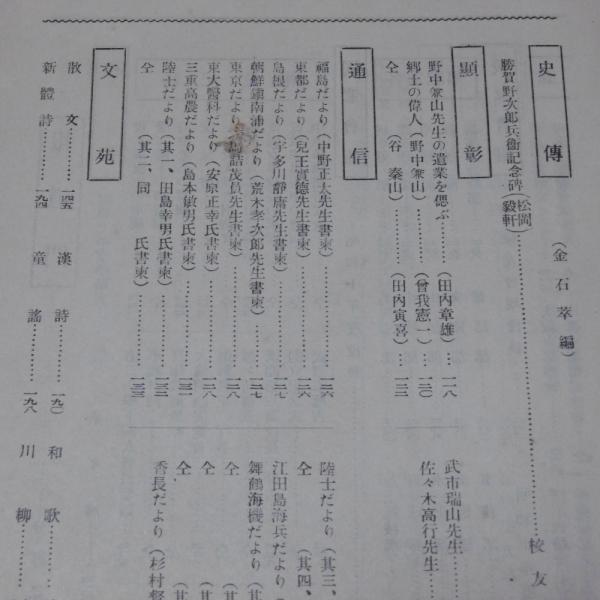 史傳
(金石萃編)
勝賀野次郎兵衞記念碑(松岡毅軒)……校友
顯彰
野中兼山先生の遺業を偲ぶ……(田内章雄)…一一八
郷土の偉人(野中兼山)……(曾我憲一)…一二〇
仝(谷秦山)……(田内寅喜)…一二二
武市瑞山先生……
佐々木高行先生……
通信
福島だより(中野正太先生書柬)……一二六
東都だより(兒王實德先生書柬)……一二六
島根だより(宇多川靜庸先生書柬)……一二七
朝鮮鎭南浦だより(荒木孝次郎先生書柬)……一二七
東京だより(詰茂員先生書柬)……一二八
東大醫科だより(安原正幸氏書柬)……一二八
三重高農だより(島本敏男氏書柬)……一三一
陸士だより(其一、田島幸男氏書柬)……一三二
仝(其二、同氏書柬)……一三三
陸士だより(其三、
仝(其四、
江田島海兵だより(
舞鶴海機だより(其
仝(其
仝(其
仝(其
香長だより(杉村
文苑
散文……一四五 漢詩……一九〇 和歌……
新體詩……一九四 童謠……一九八 川柳……